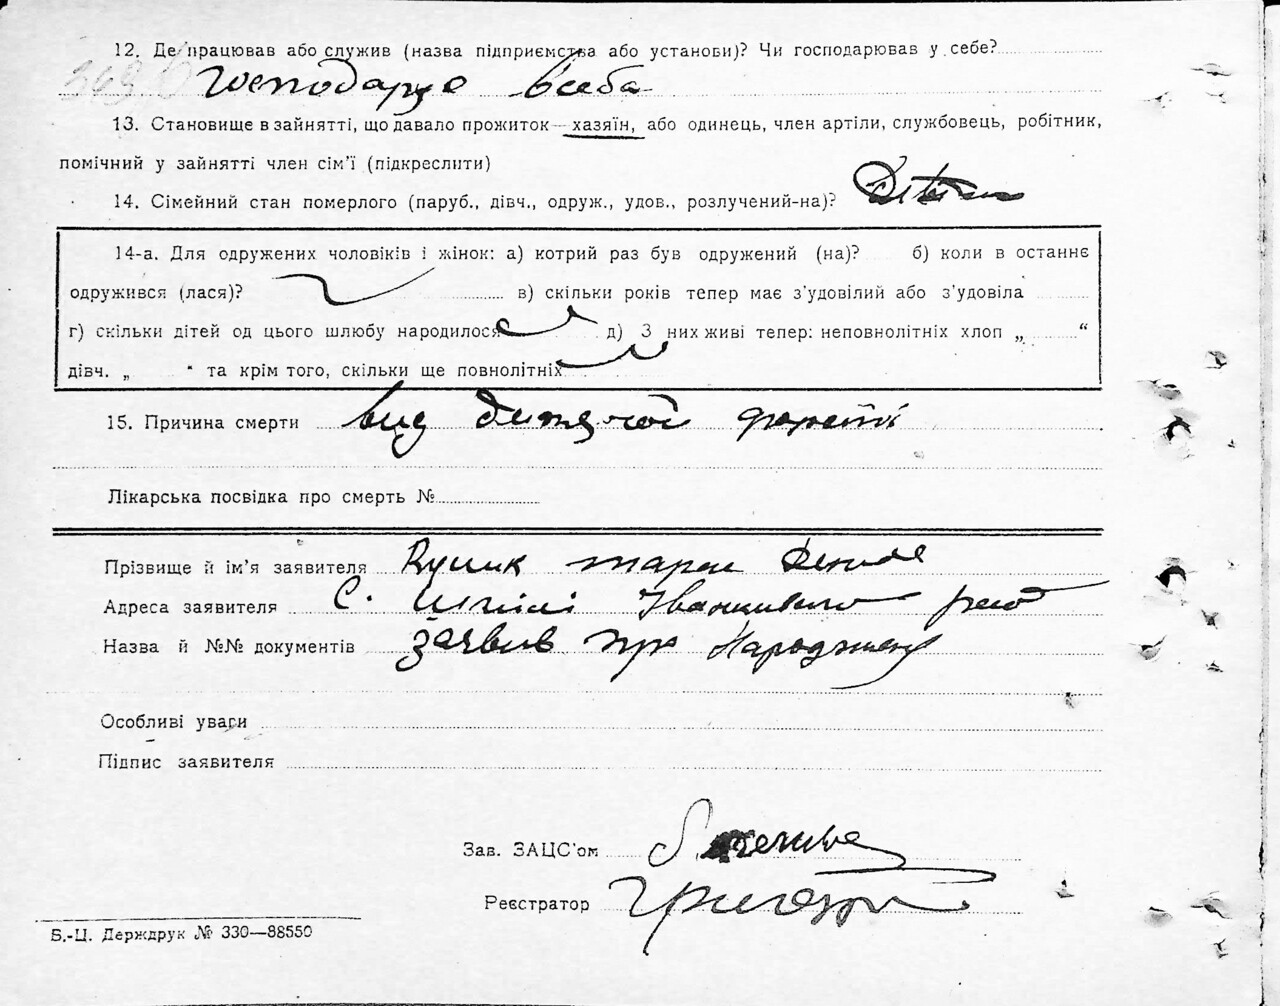 12. Де працював або служив (назва підприємства або установи)? Чи господарював у себе?
Господарує всеба
13. Становище в зайнятті, що давало прожиток — хазяїн, або одинець, член артілі, службовець, робітник,
помічний у зайнятті член сім’ї (підкреслити)
14. Сімейний стан померлого (паруб., дівч., одруж., удов., розлучений-на)?
14-а. Для одружених чоловіків і жінок: а) котрий раз був одружений (на)? б) коли в останнє
одружився (лася)? в) скільки років тепер має з’удовілий або з’удовіла
г) скільки дітей од цього шлюбу народилося д) З них живі тепер: неповнолітніх хлоп „ “
дівч. „ “ та крім того, скільки ще повнолітніх
15. Причина смерти вид
Лікарська посвідка про смерть №
Прізвище й ім’я заявителя
Адреса заявителя с.
Назва й №№ документів заявив про Народжен
Особливі уваги
Підпис заявителя
Зав. ЗАЦС’ом
Реєстратор
Б.-Ц. Держдрук № 330—88550